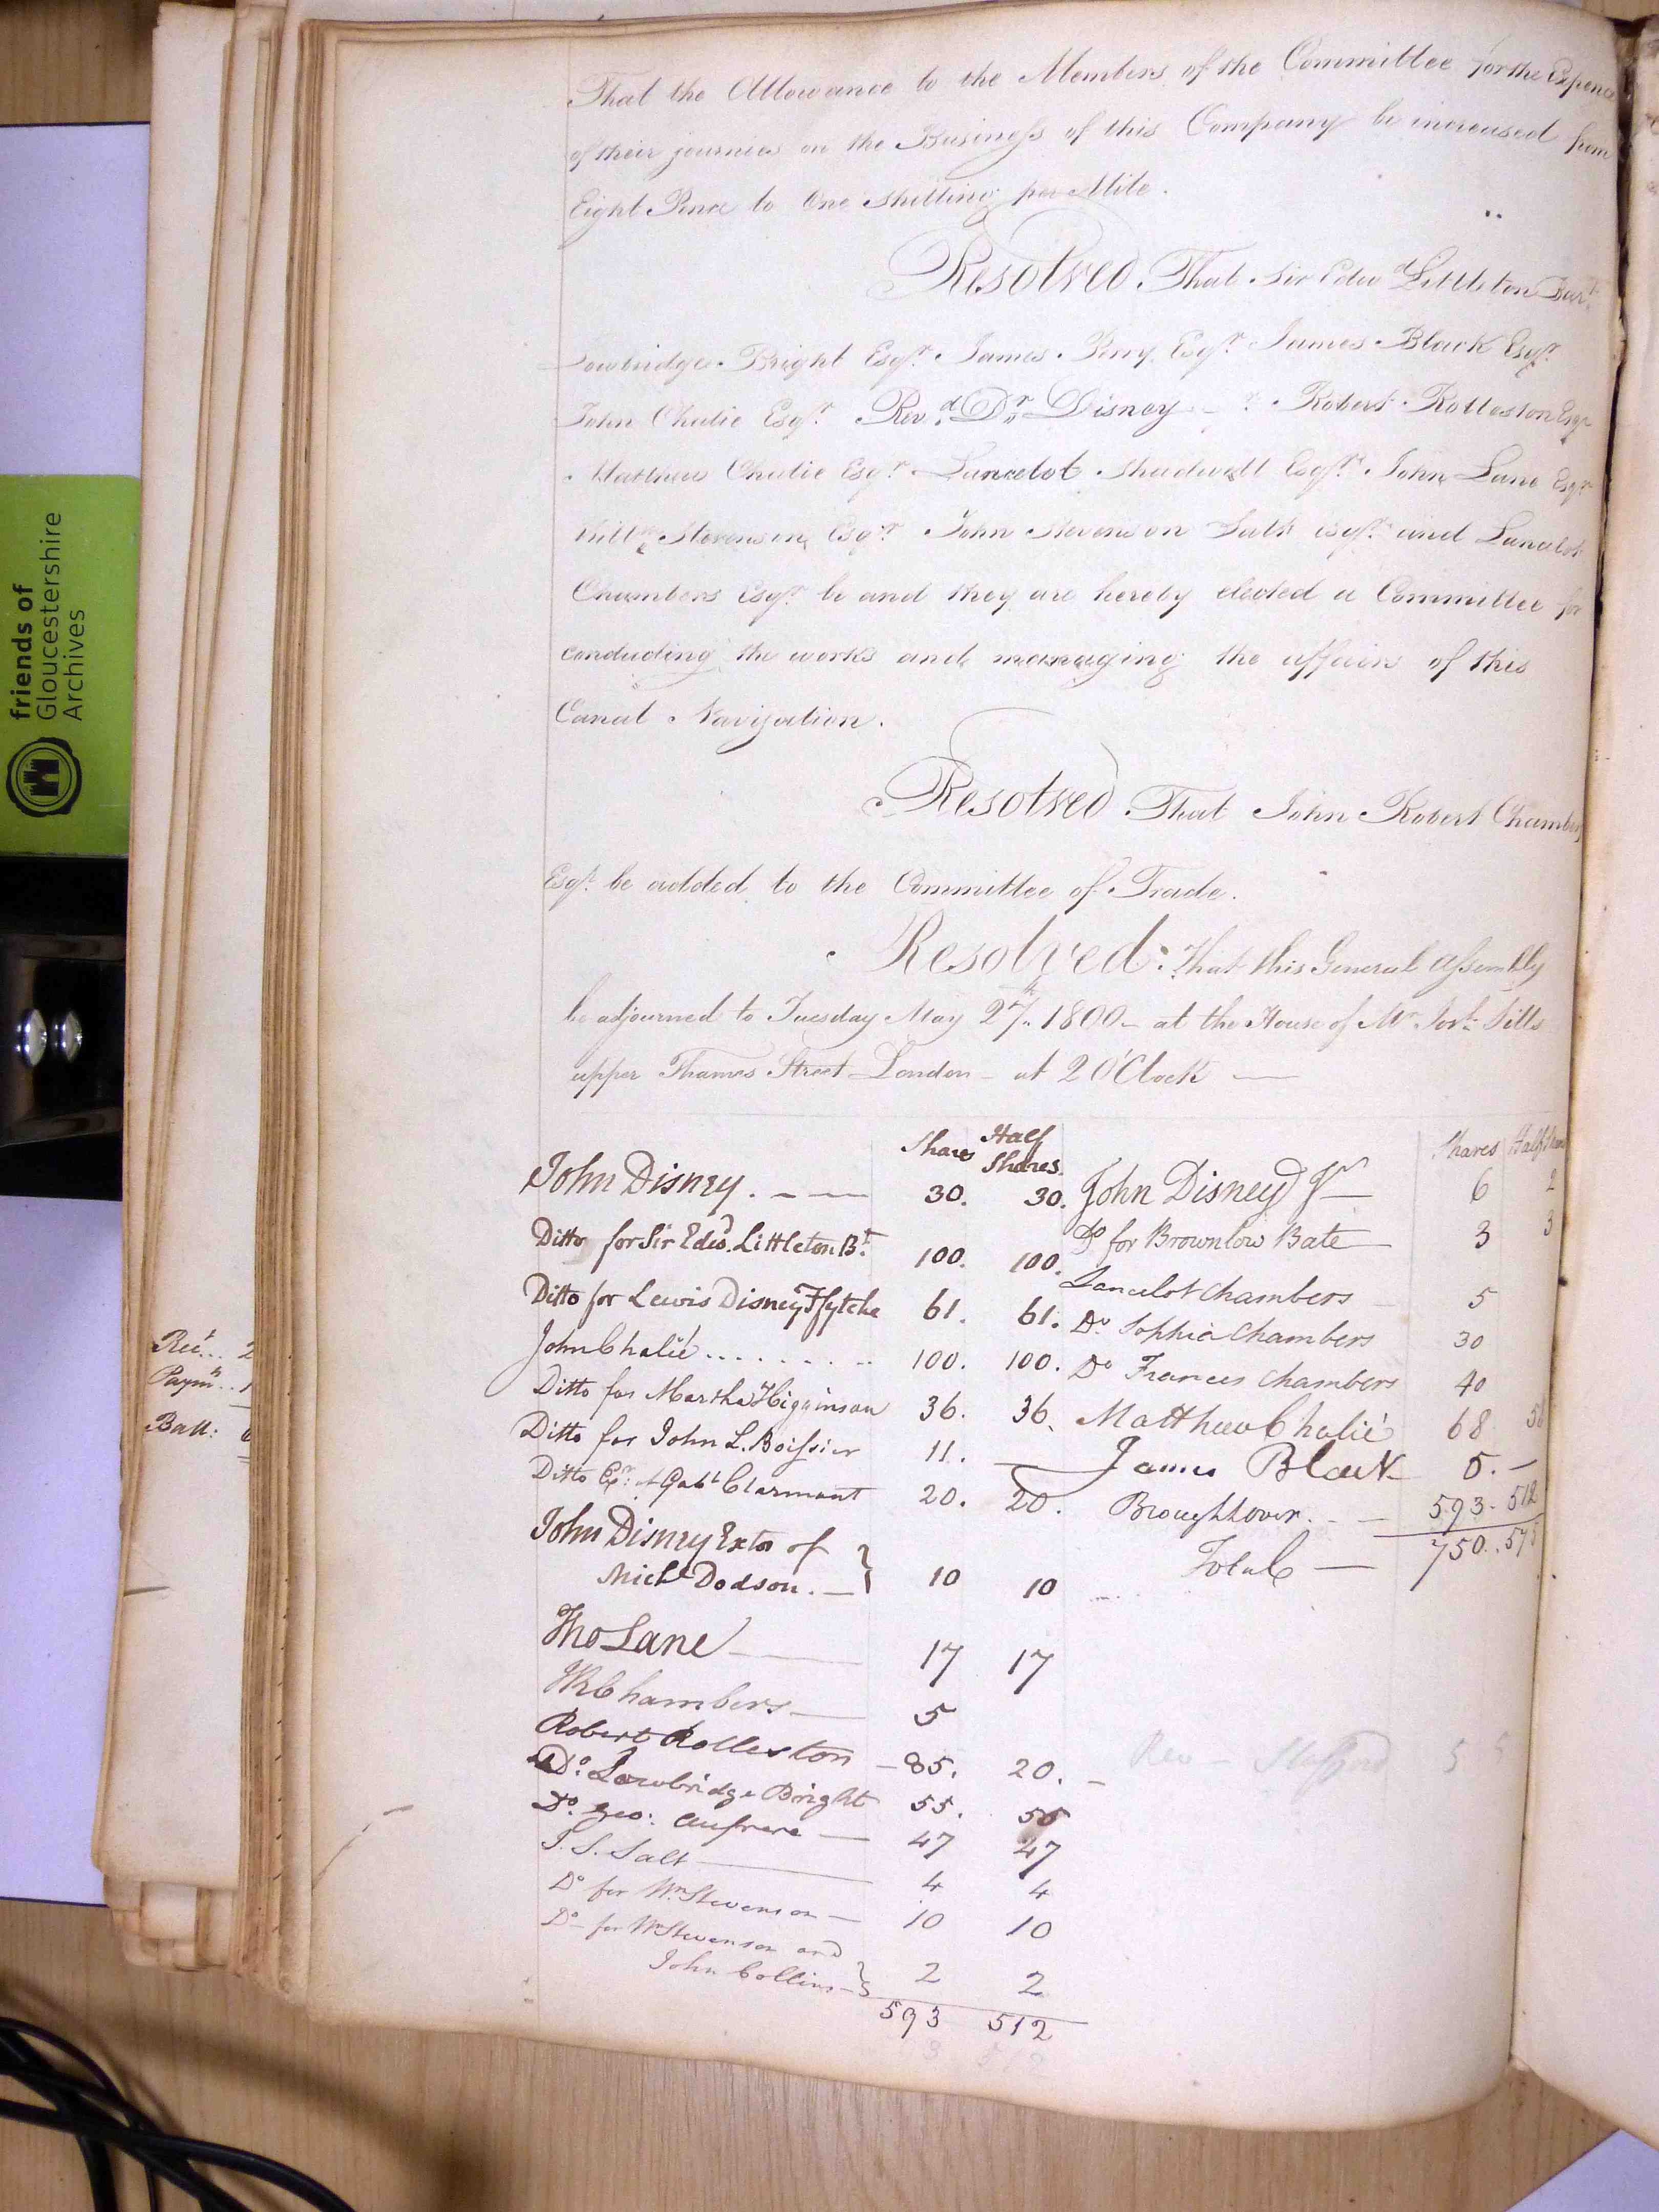 That the Allowance to the Members of the Committee for the Expence
of their journies on the Business of this Company be increased from
Eight Pence to One shilling per Mile.
Resolved That Sir Edwd Littleton Bart
Lowbridge Bright Esqr. James Perry Esqr. James Black Esqr.
John Chalie Esqr. Revd. Dr. Disney Robert Rolleston Esqr
Matthew Chalie Esqr. Lancelot Shadwell Esqr. John Lane Esqr
Willm Stevenson Esqr. John Stevenson Salt Esqr. and Lancelot
Chambers Esqr. be and they are hereby elected a Committee for
conducting the works and managing the affairs of this
Canal Navigation.
Resolved That John Robert Chambers
Esqr. be added to the Committee of Trade.
Resolved: That this General Assembly
be adjourned to Tuesday May 27th. 1800 – at the House of Mr.
upper Thames Street London – at 2 O'Clock —
Shares Half Shares.
John Disney. - — 30. 30.
Ditto for Sir Edwd. Littleton Bt. 100. 100.
Ditto for Lewis Disney Ffytche 61. 61.
John Chalié ......... 100. 100.
Ditto for Martha Higginson 36. 36.
Ditto for John L. Boissier 11. —
Ditto Exr. of Gabl Clarmont 20. 20.
John Disney Extor of
Michl Dodson. — } 10 10
Tho Lane — 17 17
JRChambers — 5
Robert Rolleston – 85. 20. –
Do. Lowbridge Bright 55. 55
Do. Geo: Aufrere — 47 47
J. S. Salt — 4 4
Do for Wm Stevenson — 10 10
Do – for Wm Stevenson and
John Collins – } 2 2
593 512
Shares Half Shares
John Disney Jr — 6 2
Do for Brownlow Bate — 3 3
Lancelot Chambers 5
Do. Sophia Chambers 30
Do Frances Chambers 40
Matthew Chalié 68
James Black 5. –
Brought over. - — 593. 512
Total — 750. 575
Rev – 5 5
Rect...
Paymts..
Ball:
friends of
Gloucestershire
Archives